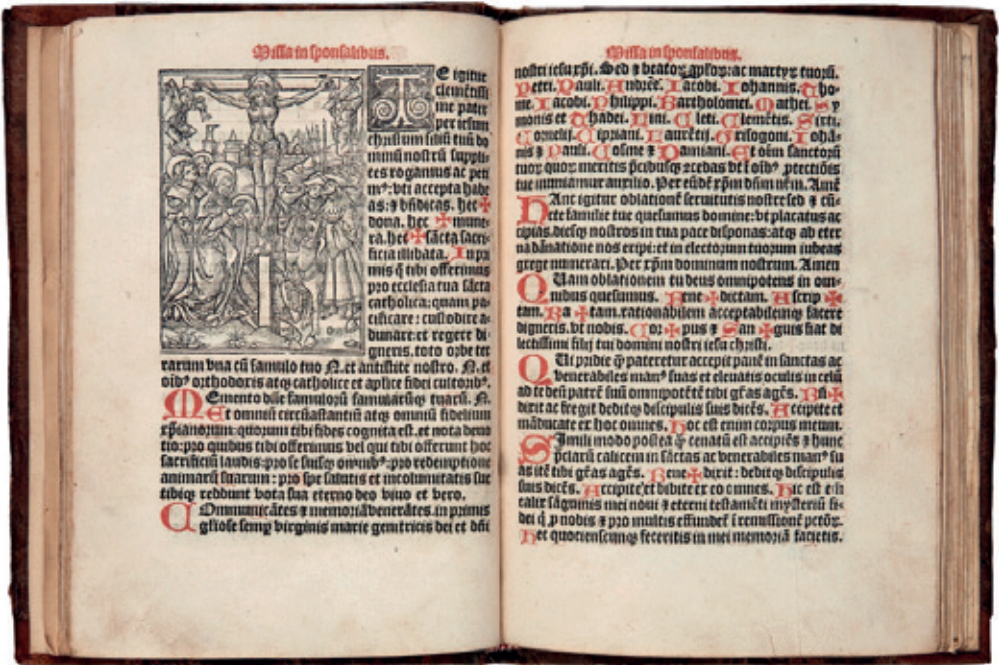 Missa in sponsalibus.
TE igitur
clemētissi
me pater
per iesum
christum filiū tuū do
minū nostrū suppli
tes rogamus ac peti
mꝰ: vti accepta habe
as: ⁊ bn̄dicas. hec ✠
dona. hec ✠ mune-
ra. hec ✠ sācta sacri-
ficia illibata. In pri
mis q̄ tibi offerimus
pro ecclesia tua sācta
catholica: quam pa-
cificare: custodire a-
dunare: et regere di-
gneris. toto orbe ter
rarum vna cū famulo tuo N. et antistite nostro. N. et
oībꝰ orthodoxis atqꝫ catholice et aplice fidei cultoribꝰ.
MEmento dn̄e famulorū famularūqꝫ tuarū. N.
Et omniū circūastantiū atqꝫ omniū fidelium
xp̄ianorum: quorum tibi fides cognita est. et nota deuo
tio: pro quibus tibi offerimus vel qui tibi offerunt hoc
sacrificiū laudis: pro se suisqꝫ omnibꝰ: pro redemptione
animarū suarum: pro spe salutis et incolumitatis sue
tibiqꝫ reddunt vota sua eterno deo viuo et vero.
COmmunicātes ⁊ memoriā venerātes. in primis
gl̄iose semꝑ virginis marie genitricis dei et dn̄i
Missa in sponsalibus.
nostri iesu xp̄i. Sed ⁊ beatoꝝ apl̄oꝝ: ac martyꝝ tuorū.
Petri. Pauli. Andree. Iacobi. Iohannis. Tho-
me. Iacobi. Philippi. Bartholomei. Mathei. Sy
monis et Thadei. Lini. Cleti. Clemētis. Sixti.
Cornelij. Cipriani. Laurētij. Grisogoni. Iohā-
nis ⁊ Pauli. Cosme ⁊ Damiani. Et oīm sanctorū
tuoꝝ quoꝝ meritis p̄cibusqꝫ ꝯcedas vt ī oībꝰ ꝓtectiōis
tue muniamur auxilio. Per eūdē xp̄m dn̄m nr̄m. Amē
HAnc igitur oblationē seruitutis nostre sed ⁊ cū-
cte familie tue quesumus domine: vt placatus ac
cipias. diesqꝫ nostros in tua pace disponas: atqꝫ ab eter
na dānatione nos eripi: et in electorum tuorum iubeas
grege numerari. Per xp̄m dominum nostrum. Amen
QUam oblationem tu deus omnipotens in om-
nibus quesumus. Bene ✠ dictam. Ascrip ✠
tam. Ra ✠ tam. rationabilem acceptabilemqꝫ facere
digneris. vt nobis. Cor ✠ pus ⁊ San ✠ guis fiat di
lectissimi filij tui domini nostri iesu christi.
QUi pridie q̄ pateretur accepit panē in sanctas ac
venerabiles manꝰ suas et eleuatis oculis in celū
ad te deū patrē suū omnipotētē tibi gr̄as agēs. Bn̄ ✠
dixit ac fregit deditqꝫ discipulis suis dicēs. Accipite et
māducate ex hoc omnes. Hoc est enim corpus meum.
SImili modo postea q̄ cenatū est accipiēs ⁊ hunc
p̄clarū calicem in sāctas ac venerabiles manꝰ su
as itē tibi gr̄as agēs. Bene ✠ dixit: deditqꝫ discipulis
suis dicēs. Accipite et bibite ex eo omnes. Hic est eīn
calix sāguinis mei noui ⁊ eterni testamēti mysteriū fi-
dei q̄ ꝓ nobis ⁊ pro multis effundet ī remissionē pctōꝝ.
Hec quotienscunqꝫ feceritis in mei memoriā facietis.